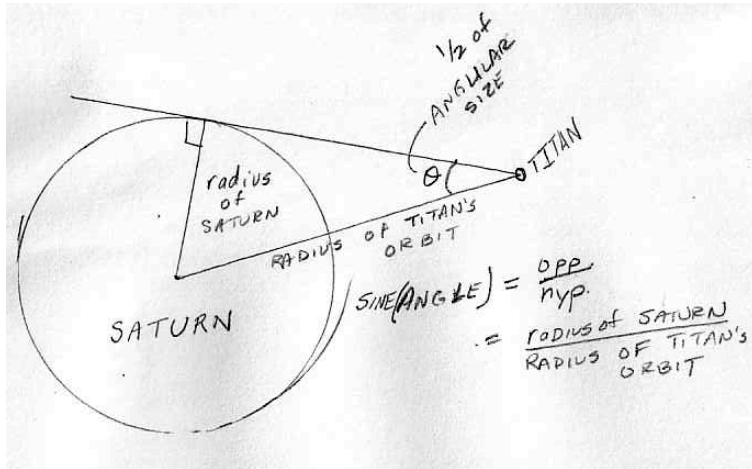 1/2 of
ANGULAR
SIZE
TITAN
θ
radius
of
SATURN
RADIUS OF TITAN'S
ORBIT
SATURN
SINE(ANGLE) = opp.
hyp.
= radius of SATURN
RADIUS OF TITAN'S
ORBIT